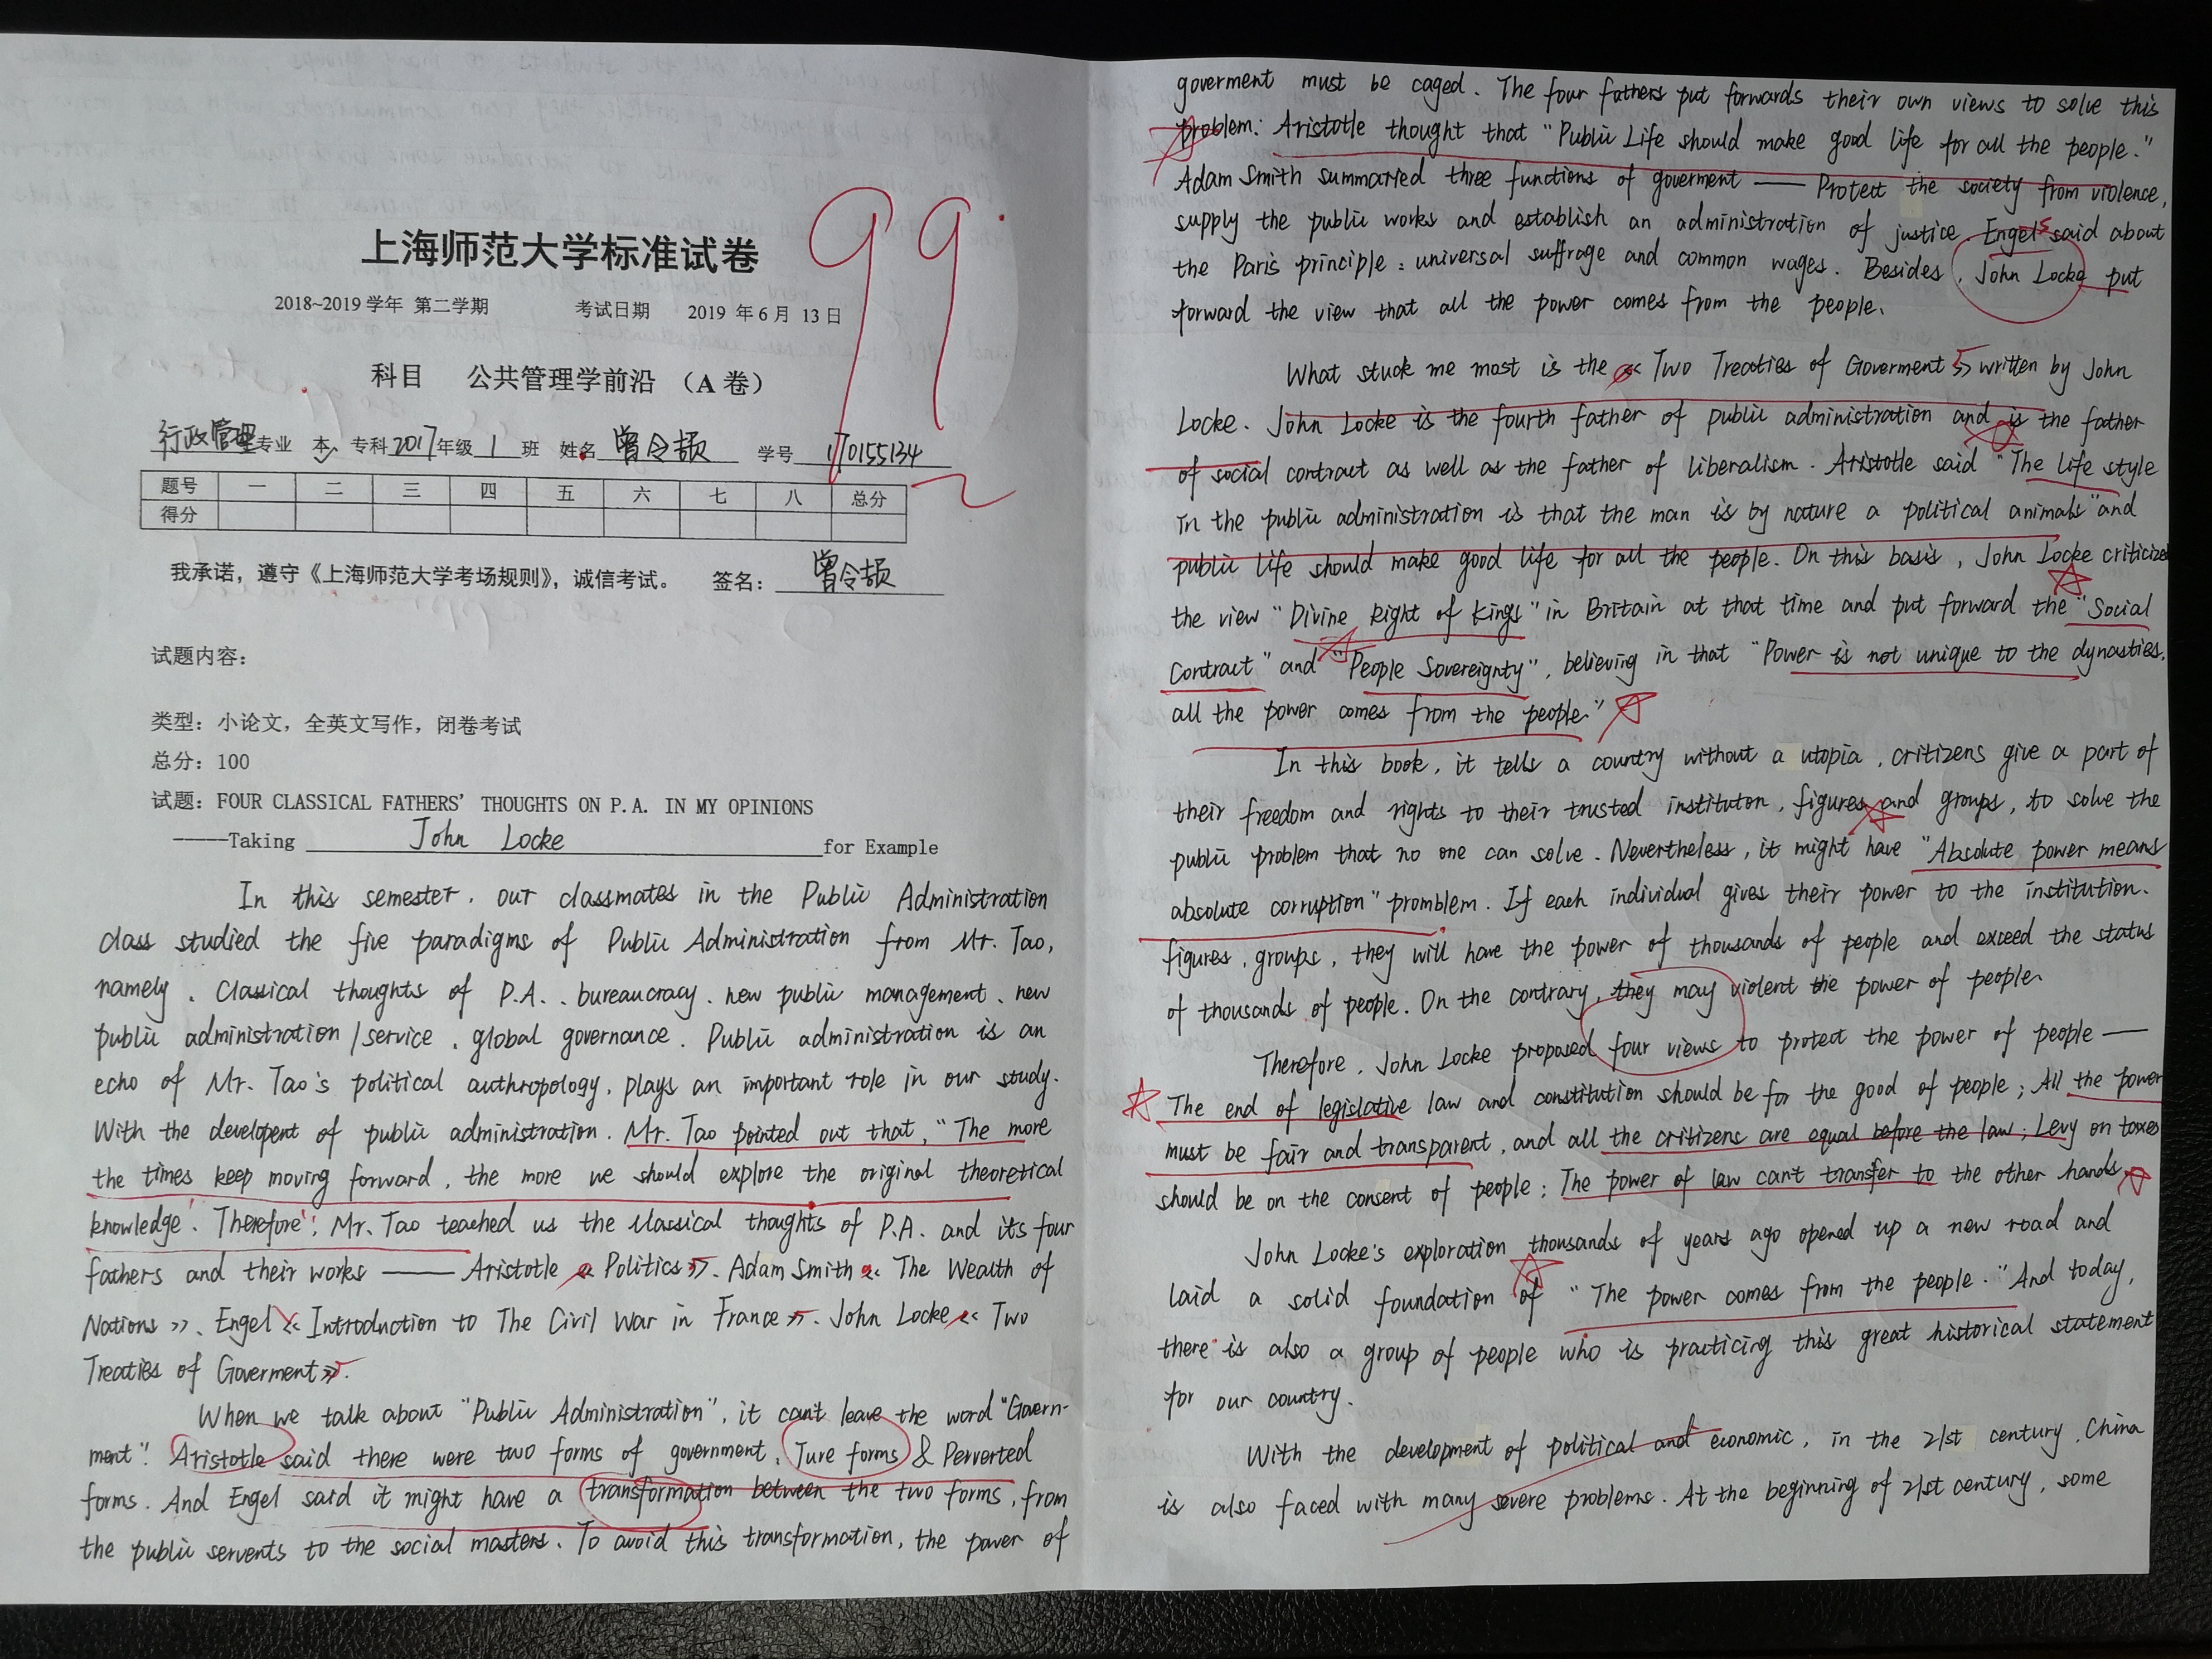 上海师范大学标准试卷
99
2018~2019 学年 第二学期 考试日期 2019 年 6 月 13 日
科目 公共管理学前沿 （A 卷）
行政管理专业 本、专科 2017年级 1 班 姓名 曾令颉 学号 170155134
题号 一 二 三 四 五 六 七 八 总分
得分
我承诺，遵守《上海师范大学考场规则》，诚信考试。 签名： 曾令颉
试题内容：
类型：小论文，全英文写作，闭卷考试
总分：100
试题：FOUR CLASSICAL FATHERS' THOUGHTS ON P.A. IN MY OPINIONS
——Taking John Locke for Example
In this semester, our classmates in the Public Administration
class studied the five paradigms of Public Administration from Mr. Tao,
namely, Classical thoughts of P.A., bureaucracy, new public management, new
public administration/service, global governance. Public administration is an
echo of Mr. Tao's political anthropology, plays an important role in our study.
With the developent of public administration. Mr. Tao pointed out that, "The more
the times keep moving forward, the more we should explore the original theoretical
knowledge". Therefore, Mr. Tao teached us the classical thoughts of P.A. and its four
fathers and their works —— Aristotle «Politics», Adam Smith «The Wealth of
Nations», Engel «Introduction to The Civil War in France», John Locke «Two
Treaties of Goverment».
When we talk about "Public Administration", it can't leave the word "Govern-
ment". Aristotle said there were two forms of government, Ture forms & Perverted
forms. And Engel said it might have a transformation between the two forms, from
the public servents to the social masters. To avoid this transformation, the power of
goverment must be caged. The four fathers put forwards their own views to solve this
problem: Aristotle thought that "Public Life should make good life for all the people."
Adam Smith summaried three functions of goverment —— Protect the society from violence,
supply the public works and establish an administration of justice. Engels said about
the Paris principle: universal suffrage and common wages. Besides, John Locke put
forward the view that all the power comes from the people.
What stuck me most is the «Two Treaties of Goverment» written by John
Locke. John Locke is the fourth father of public administration and is the father
of social contract as well as the father of liberalism. Aristotle said "The life style
in the public administration is that the man is by nature a political animals" and
public life should make good life for all the people. On this basis, John Locke criticized
the view "Divine Right of Kings" in Britain at that time and put forward the "Social
Contract" and "People Sovereignty", believing in that "Power is not unique to the dynasties,
all the power comes from the people."
In this book, it tells a country without a utopia, critizens give a part of
their freedom and rights to their trusted instituton, figures and groups, to solve the
public problem that no one can solve. Nevertheless, it might have "Absolute power means
absolute corruption" promblem. If each individual gives their power to the institution,
figures, groups, they will have the power of thousands of people and exceed the status
of thousands of people. On the contrary, they may violent the power of people.
Therefore, John Locke proposed four views to protect the power of people ——
The end of legislative law and constitution should be for the good of people; All the power
must be fair and transparent, and all the critizens are equal before the law; Levy on taxes
should be on the consent of people; The power of law can't transfer to the other hands.
John Locke's exploration thousands of years ago opened up a new road and
laid a solid foundation of "The power comes from the people." And today,
there is also a group of people who is practicing this great historical statement
for our country.
With the development of political and economic, in the 21st century, China
is also faced with many severe problems. At the beginning of 21st century, some